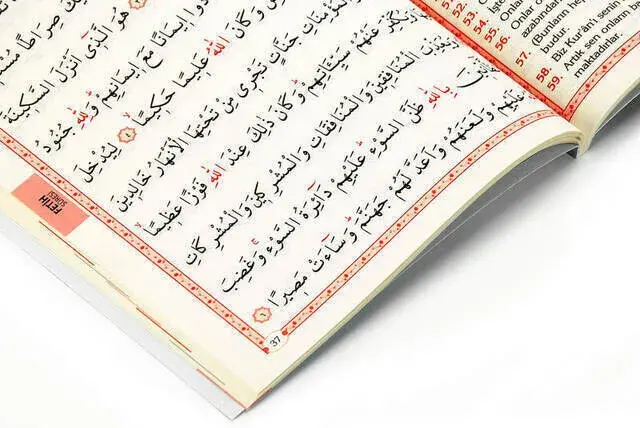 صِرَاطًا
هُوَ الَّذِي أَنْزَلَ السَّكِينَةَ
إِيمَانًا مَعَ إِيمَانِهِمْ وَلِلَّهِ جُنُودُ
وَكَانَ اللَّهُ عَلِيمًا حَكِيمًا ٤ لِيُدْخِلَ
جَنَّاتٍ تَجْرِي مِنْ تَحْتِهَا الْأَنْهَارُ خَالِدِينَ
عَنْهُمْ سَيِّئَاتِهِمْ وَكَانَ ذَلِكَ عِنْدَ اللَّهِ فَوْزًا عَظِيمًا
الْمُنَافِقِينَ وَالْمُنَافِقَاتِ وَالْمُشْرِكِينَ وَالْمُشْرِكَاتِ
بِاللَّهِ ظَنَّ السَّوْءِ عَلَيْهِمْ دَائِرَةُ السَّوْءِ وَغَضِبَ
عَلَيْهِمْ وَلَعَنَهُمْ وَأَعَدَّ لَهُمْ جَهَنَّمَ وَسَاءَتْ مَصِيرًا ٦
FETİH
SÛRESİ
37
53.
54.
55.
56. Onlar
azabından
57. (Bunların hep
budur.
58. Biz Kur'ân'ı senin
59. Artık sen onların
maktadırlar.